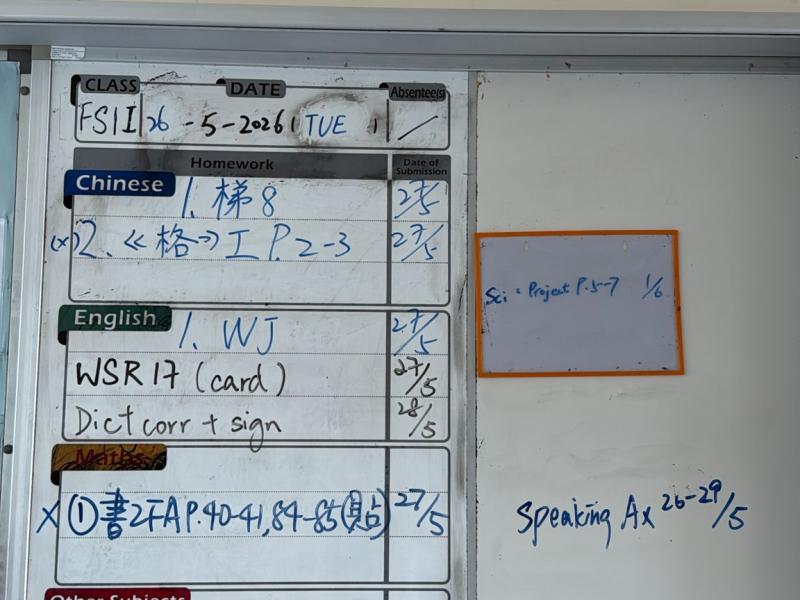 CLASS DATE Absentee(s)
26 -5-2026 (TUE ) /
Homework Date of Submission
Chinese
1. 梯8 27/5
(x) 2. 《格一》工 P.2-3 27/5
English
1. WJ 27/5
WSR 17 (card) 27/5
Dict corr + sign 28/5
Maths
X ① 書2下A P.40-41, 84-85 27/5
Other Subjects
Sci : Project P.5-7 1/6
Speaking Ax 26-29/5